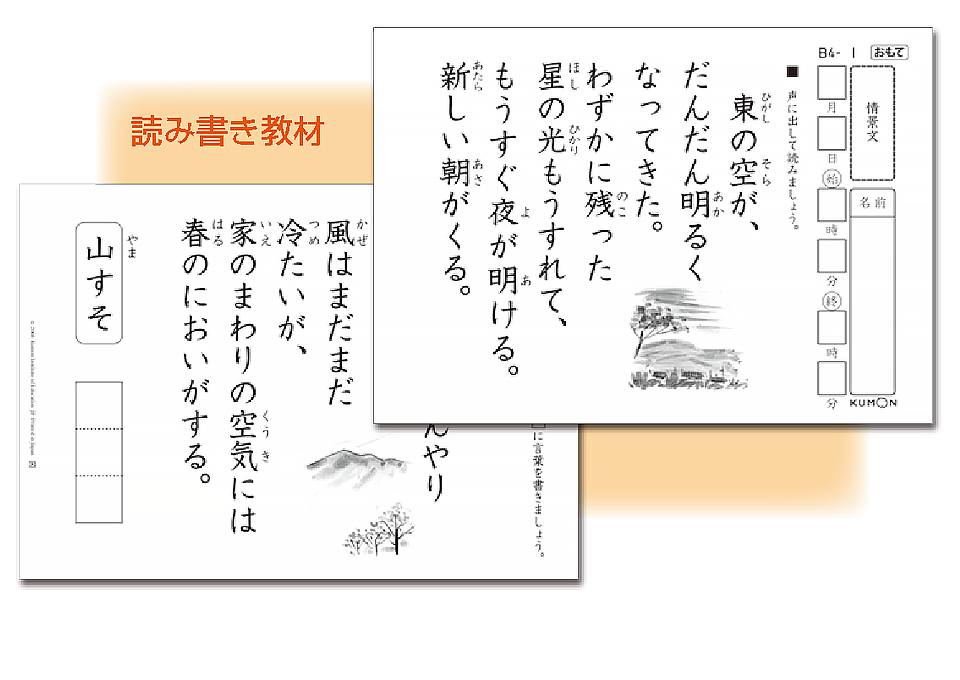 読み書き教材
B4-1 おもて
情景文
名前
月
日
始
時
分
終
時
分
KUMON
■ 声に出して読みましょう。
東の空が、
ひがし そら
だんだん明るく
あか
なってきた。
わずかに残った
のこ
星の光もうすれて、
ほし ひかり
もうすぐ夜が明ける。
よ あ
新しい朝がくる。
あたら あさ
に言葉を書きましょう。
んやり
風はまだまだ
かぜ
冷たいが、
つめ
家のまわりの空気には
いえ くうき
春のにおいがする。
はる
山すそ
やま